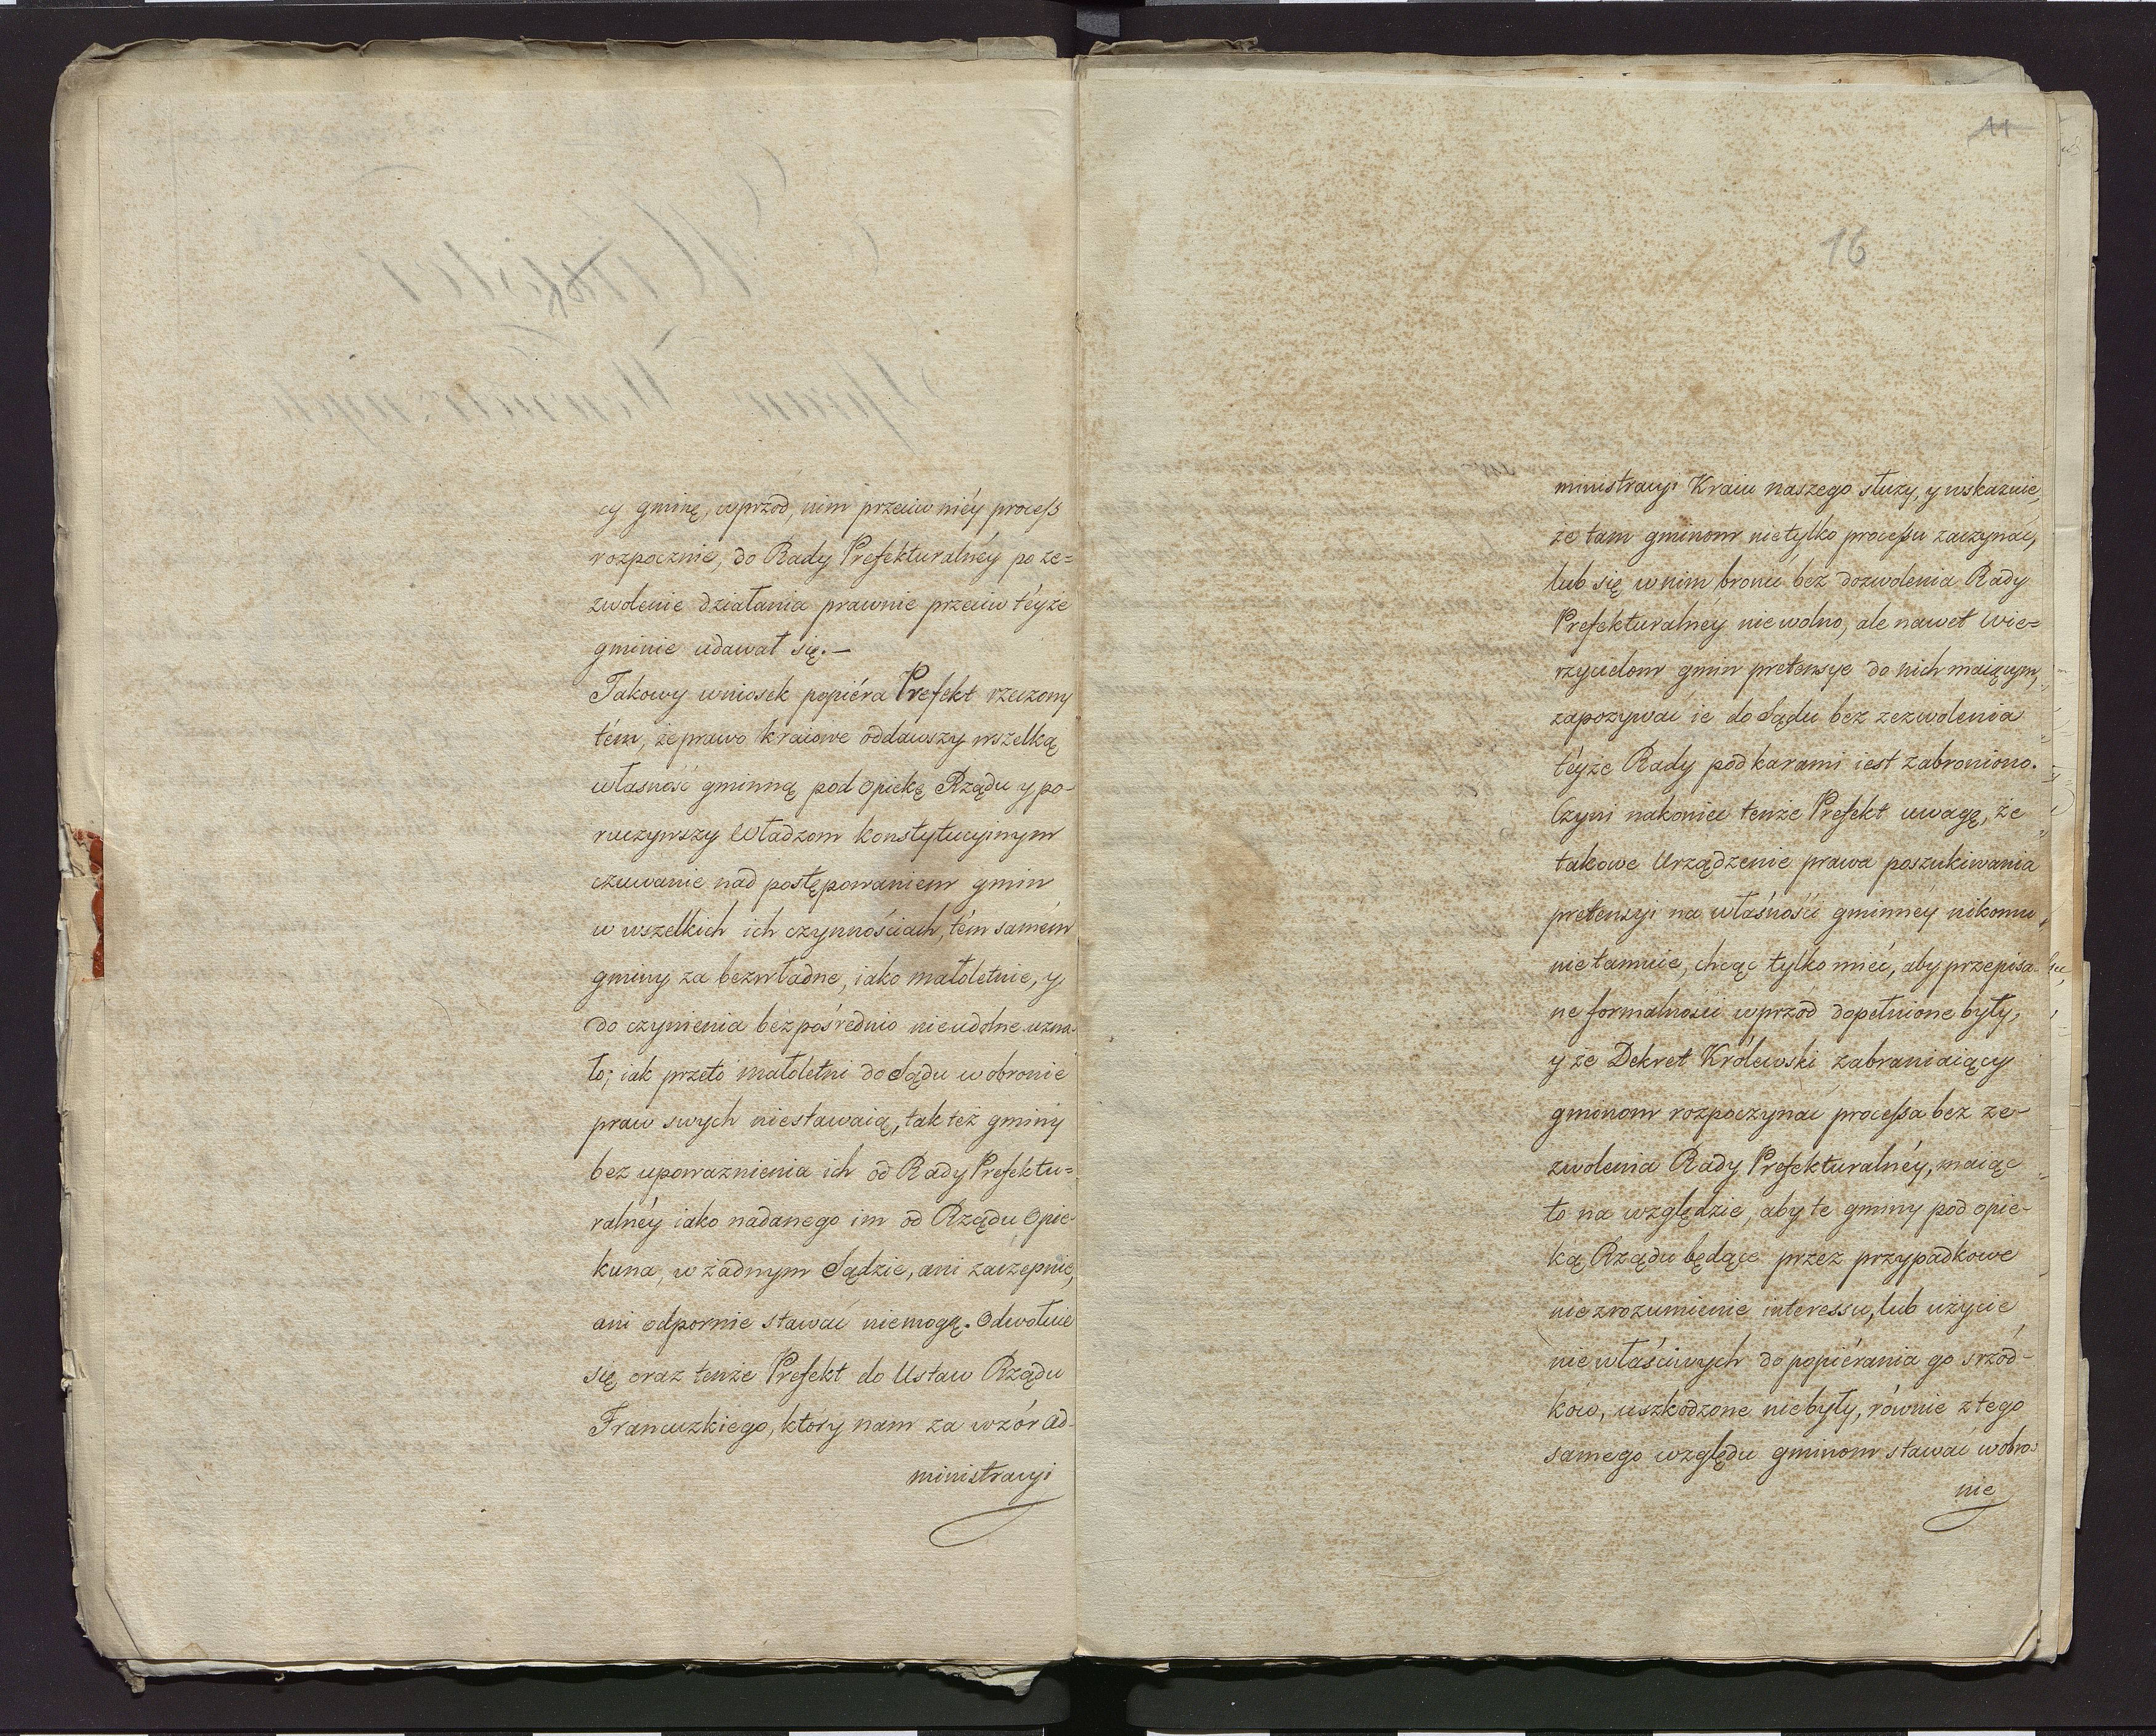 cy gminę, wprzód, nim przeciw niéy process
rozpocznie, do Rady Prefekturalnéy po ze=
zwolenie działania prawnie przeciw téyże
gminie udawał się.—
Takowy wniosek popiéra Prefekt rzeczony
tém, że prawo kraiowe oddawszy wszelką
własność gminną pod opiekę Rządu y po-
ruczywszy Władzom konstytucyinym
czuwanie nad postępowaniem gmin
w wszelkich ich czynnościach, tém samém
gminy za bezwładne, iako małoletnie, y
do czynienia bezpośrednio nieudolne uzna-
ło; iak przeto małoletni do Sądu w obronie
praw swych niestawaią, tak też gminy
bez upoważnienia ich od Rady Prefektu=
ralnéy iako nadanego im od Rządu Opie-
kuna, w żadnym Sądzie, ani zaczepnie,
ani odpornie stawać niemogą. Odwołuie
się oraz tenże Prefekt do Ustaw Rządu
Francuzkiego, który nam za wzór ad-
ministracyi
11
16
ministracyi Kraiu naszego służy, y wskazuie,
że tam gminom nie tylko processu zaczynać,
lub się w nim bronić bez dozwolenia Rady
Prefekturalnéy nie wolno, ale nawet wie=
rzycielom gmin pretensye do nich maiącym,
zapozywać ie do Sądu bez zezwolenia
téyże Rady pod karami iest zabroniono.
Czyni nakoniec tenże Prefekt uwagę, że
takowe Urządzenie prawa poszukiwania
pretensyi na własności gminnéy nikomu
nietamuie, chcąc tylko mieć, aby przepisa-
ne formalności wprzód dopełnione były,
y że Dekret Królewski zabraniaiący
gminom rozpoczynać processa bez ze-
zwolenia Rady Prefekturalnéy, maiąc
to na względzie, aby te gminy pod opie-
ką Rządu będące przez przypadkowe
niezrozumienie interessu, lub użycie
niewłaściwych do popiérania go srzód-
ków, uszkodzone niebyły, równie z tego
samego względu gminom stawać w obro-
nie